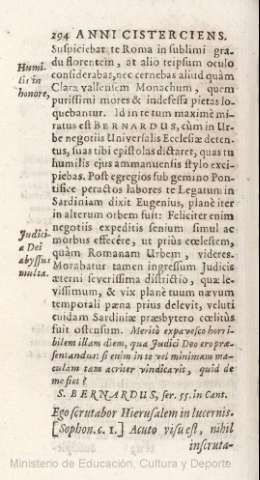 294 ANNI CISTERCIENS.
Suspiciebat te Roma in sublimi gra-
du florentem, at alio teipsum oculo
Humi-
lis in
honore,
considerabas, nec cernebas aliud quàm
Clara vallensem Monachum, quem
purissimi mores & indefessa pietas lo-
quebantur. Id in te tum maximè mi-
ratus est BERNARDUS, cùm in Ur-
be negotiis Universalis Ecclesiæ deten-
tus, suas tibi epistolas dictaret, quas tu
humilis ejus ammanuensis stylo exci-
piebas. Post egregios sub gemino Pon-
tifice peractos labores te Legatum in
Sardiniam dixit Eugenius, planè iter
in alterum orbem fuit: Feliciter enim
negotiis expeditis senium simul ac
Judici-
a Dei
abyssus
multa.
morbus effecêre, ut priùs cœlestem,
quàm Romanam Urbem, videres.
Morabatur tamen ingressum Judicis
æterni severissima districtio, quæ le-
vissimum, & vix planè tuum nævum
temporali pæna prius delevit, veluti
cuidam Sardiniæ præsbytero cœlitùs
fuit ostensum. Meritò expavesco horri-
bilem illam diem, qua Judici Deo ero præ-
sentandus: si enim in te vel minimam ma-
culam tam acriter vindicavit, quid de
me fiet?
S. BERNARDUS, ser. 55. in Cant.
Ego scrutabor Hierusalem in lucernis.
[Sophon. c. 1.] Acuto visu est, nihil
inscruta-
Ministerio de Educación, Cultura y Deporte